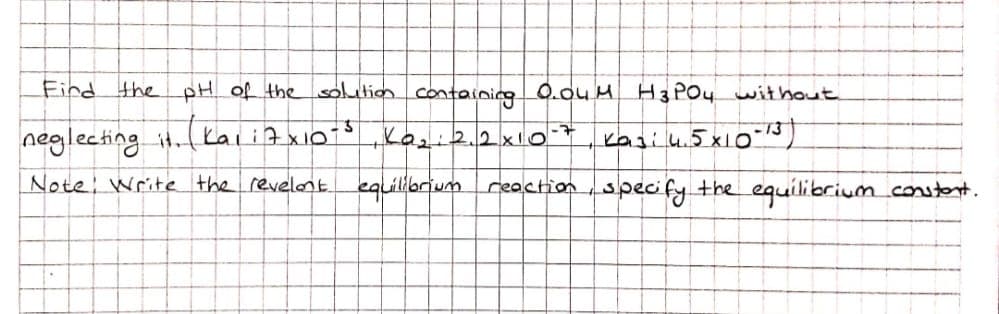 Find the pH of the solution containing 0.04M H3PO4 without
neglecting it. (Ka1:7x10-3, Ka2:2.2x10-7, Ka3:4.5x10-13)
Note: Write the revelent equilibrium reaction, specify the equilibrium constent.